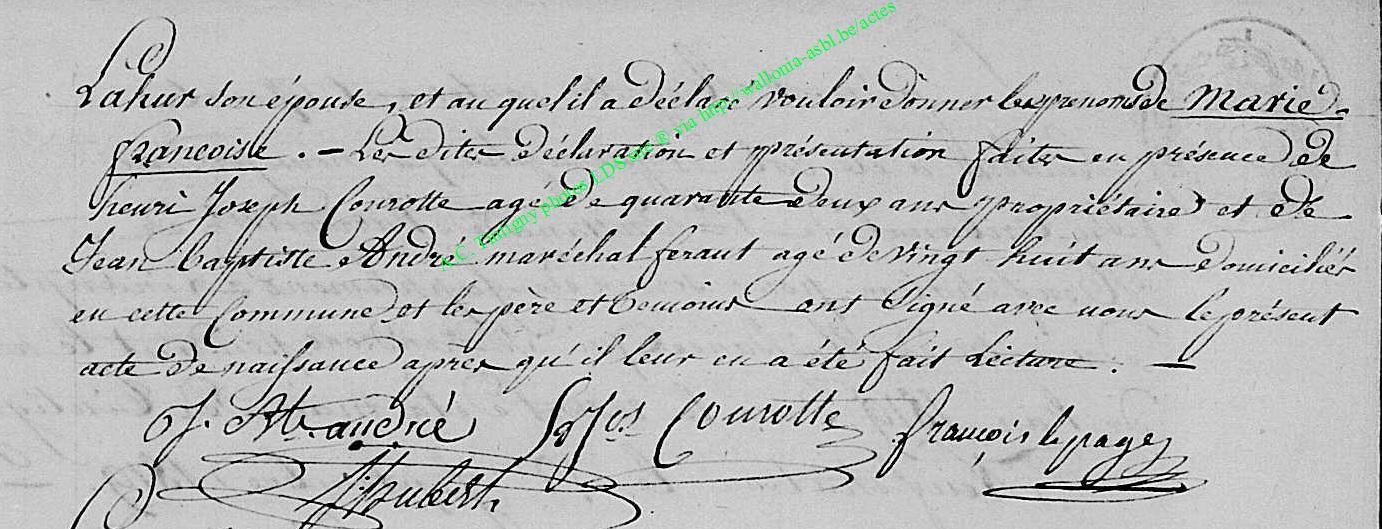 Lahur son épouse, et auquel il a déclaré vouloir donner les prenoms de Marie
françoise. — Les dites déclaration et présentation faites en présence de
henri Joseph Courotte agé de quarante deux ans propriétaire et de
Jean baptiste André maréchal feraut agé de vingt huit ans domiciliés
en cette Commune, et les père et temoins ont signé avec nous le présent
acte de naissance après qu'il leur en a été fait Lecture. —
J. Bte. andré Courotte françois lepage
hubert
A.C. Tintigny photos LDS via http://wallonia-asbl.be/actes